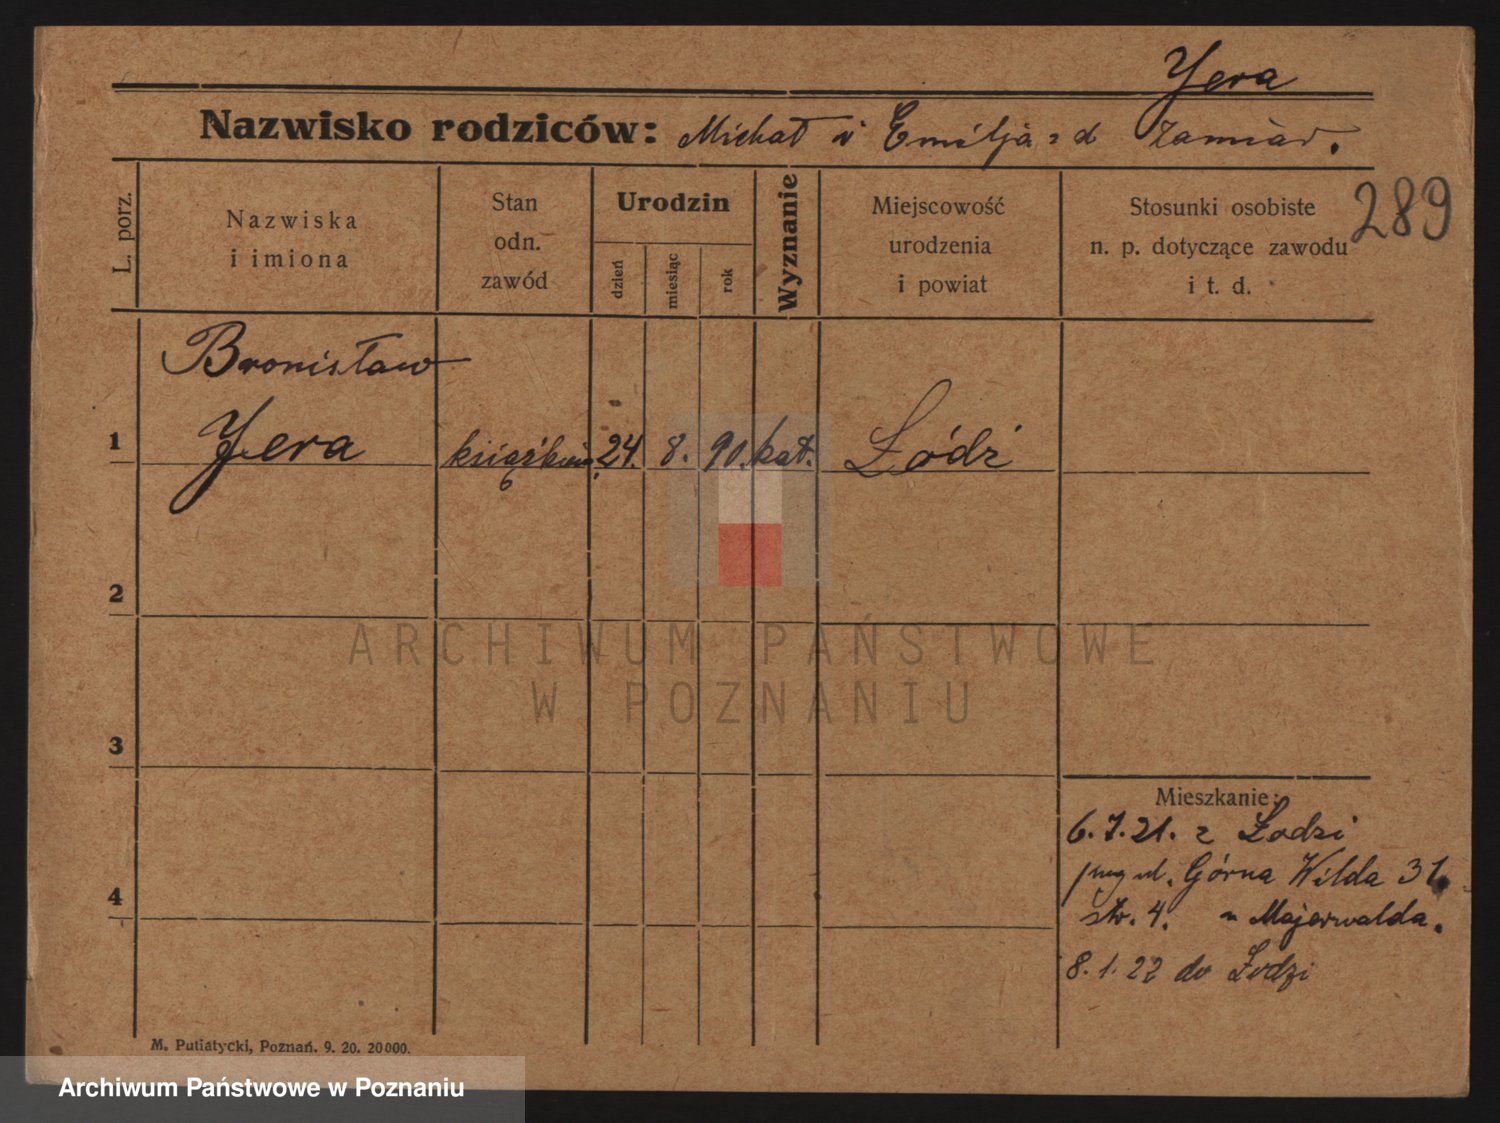 Jera
Nazwisko rodziców: Michał i Emilja z d
289
L. porz.
Nazwiska
i imiona
Stan
odn.
zawód
Urodzin
dzień
miesiąc
rok
Wyznanie
Miejscowość
urodzenia
i powiat
Stosunki osobiste
n. p. dotyczące zawodu
i t. d.
Bronisław
1 Jera 24. 8. 90. kat. Łódź
2
3
4
Mieszkanie:
6.7.21. z Łodzi
ul. Górna Wilda 31.
str. 4. u Majerwalda.
8.1.22 do Łodzi
M. Putiatycki, Poznań. 9. 20. 20000.
ARCHIWUM PAŃSTWOWE
W POZNANIU
Archiwum Państwowe w Poznaniu